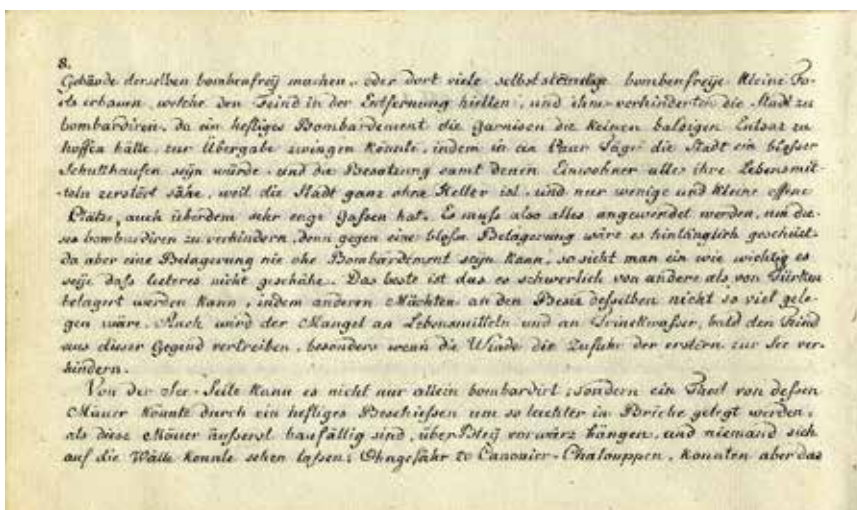 8.
Gebäude derselben bombenfreÿ machen, oder dort viele selbstständige bombenfreÿe kleine Fo-
rts erbauen, welche den Feind in der Entfernung hielten, und ihm verhinderten die Stadt zu
bombardiren, da ein heftiges Bombardement die Garnison die keinen baldigen Entsaz zu
hoffen hätte, zur Übergabe zwingen könnte, indem in ein Paar Täge die Stadt ein blosser
Schutthaufen seÿn würde, und die Besatzung samt denen Einwohner alles ihre Lebensmit-
-teln zerstört sähe, weil die Stadt ganz ohne Keller ist, und nur wenige und kleine offene
Plätze, auch überdem sehr enge Gassen hat. Es muß also alles angewendet werden, um die-
ses bombardiren zu verhindern, denn gegen eine bloße Belagerung wäre es hinlänglich geschüzt.
da aber eine Belagerung nie ohe Bombardement seÿn kann, so sieht man ein wie wichtig es
seÿe daß lezteres nicht geschähe. Das beste ist das es schwerlich von andere als von Türken
belagert werden kann, indem anderen Mächten an den Besiz desselben nicht so viel gele-
gen wäre. Auch wird der Mangel an Lebensmitteln und an Trinckwasser, bald den Feind
aus dieser Gegend vertreiben, besonders wenn die Winde die Zufuhr der erstern zur See ver-
hindern.
Von der See-Seite kann es nicht nur allein bombardirt, sondern ein Theil von dessen
Mauer könnte durch ein heftiges Beschießen um so leichter in Briche gelegt werden,
als diese Mauer äußerst baufällig sind, über Bleÿ vorwärz hängen, und niemand sich
auf die Wälle konnte sehen laßen; Ohngefähr Canonier-Chalouppen, konnten aber das